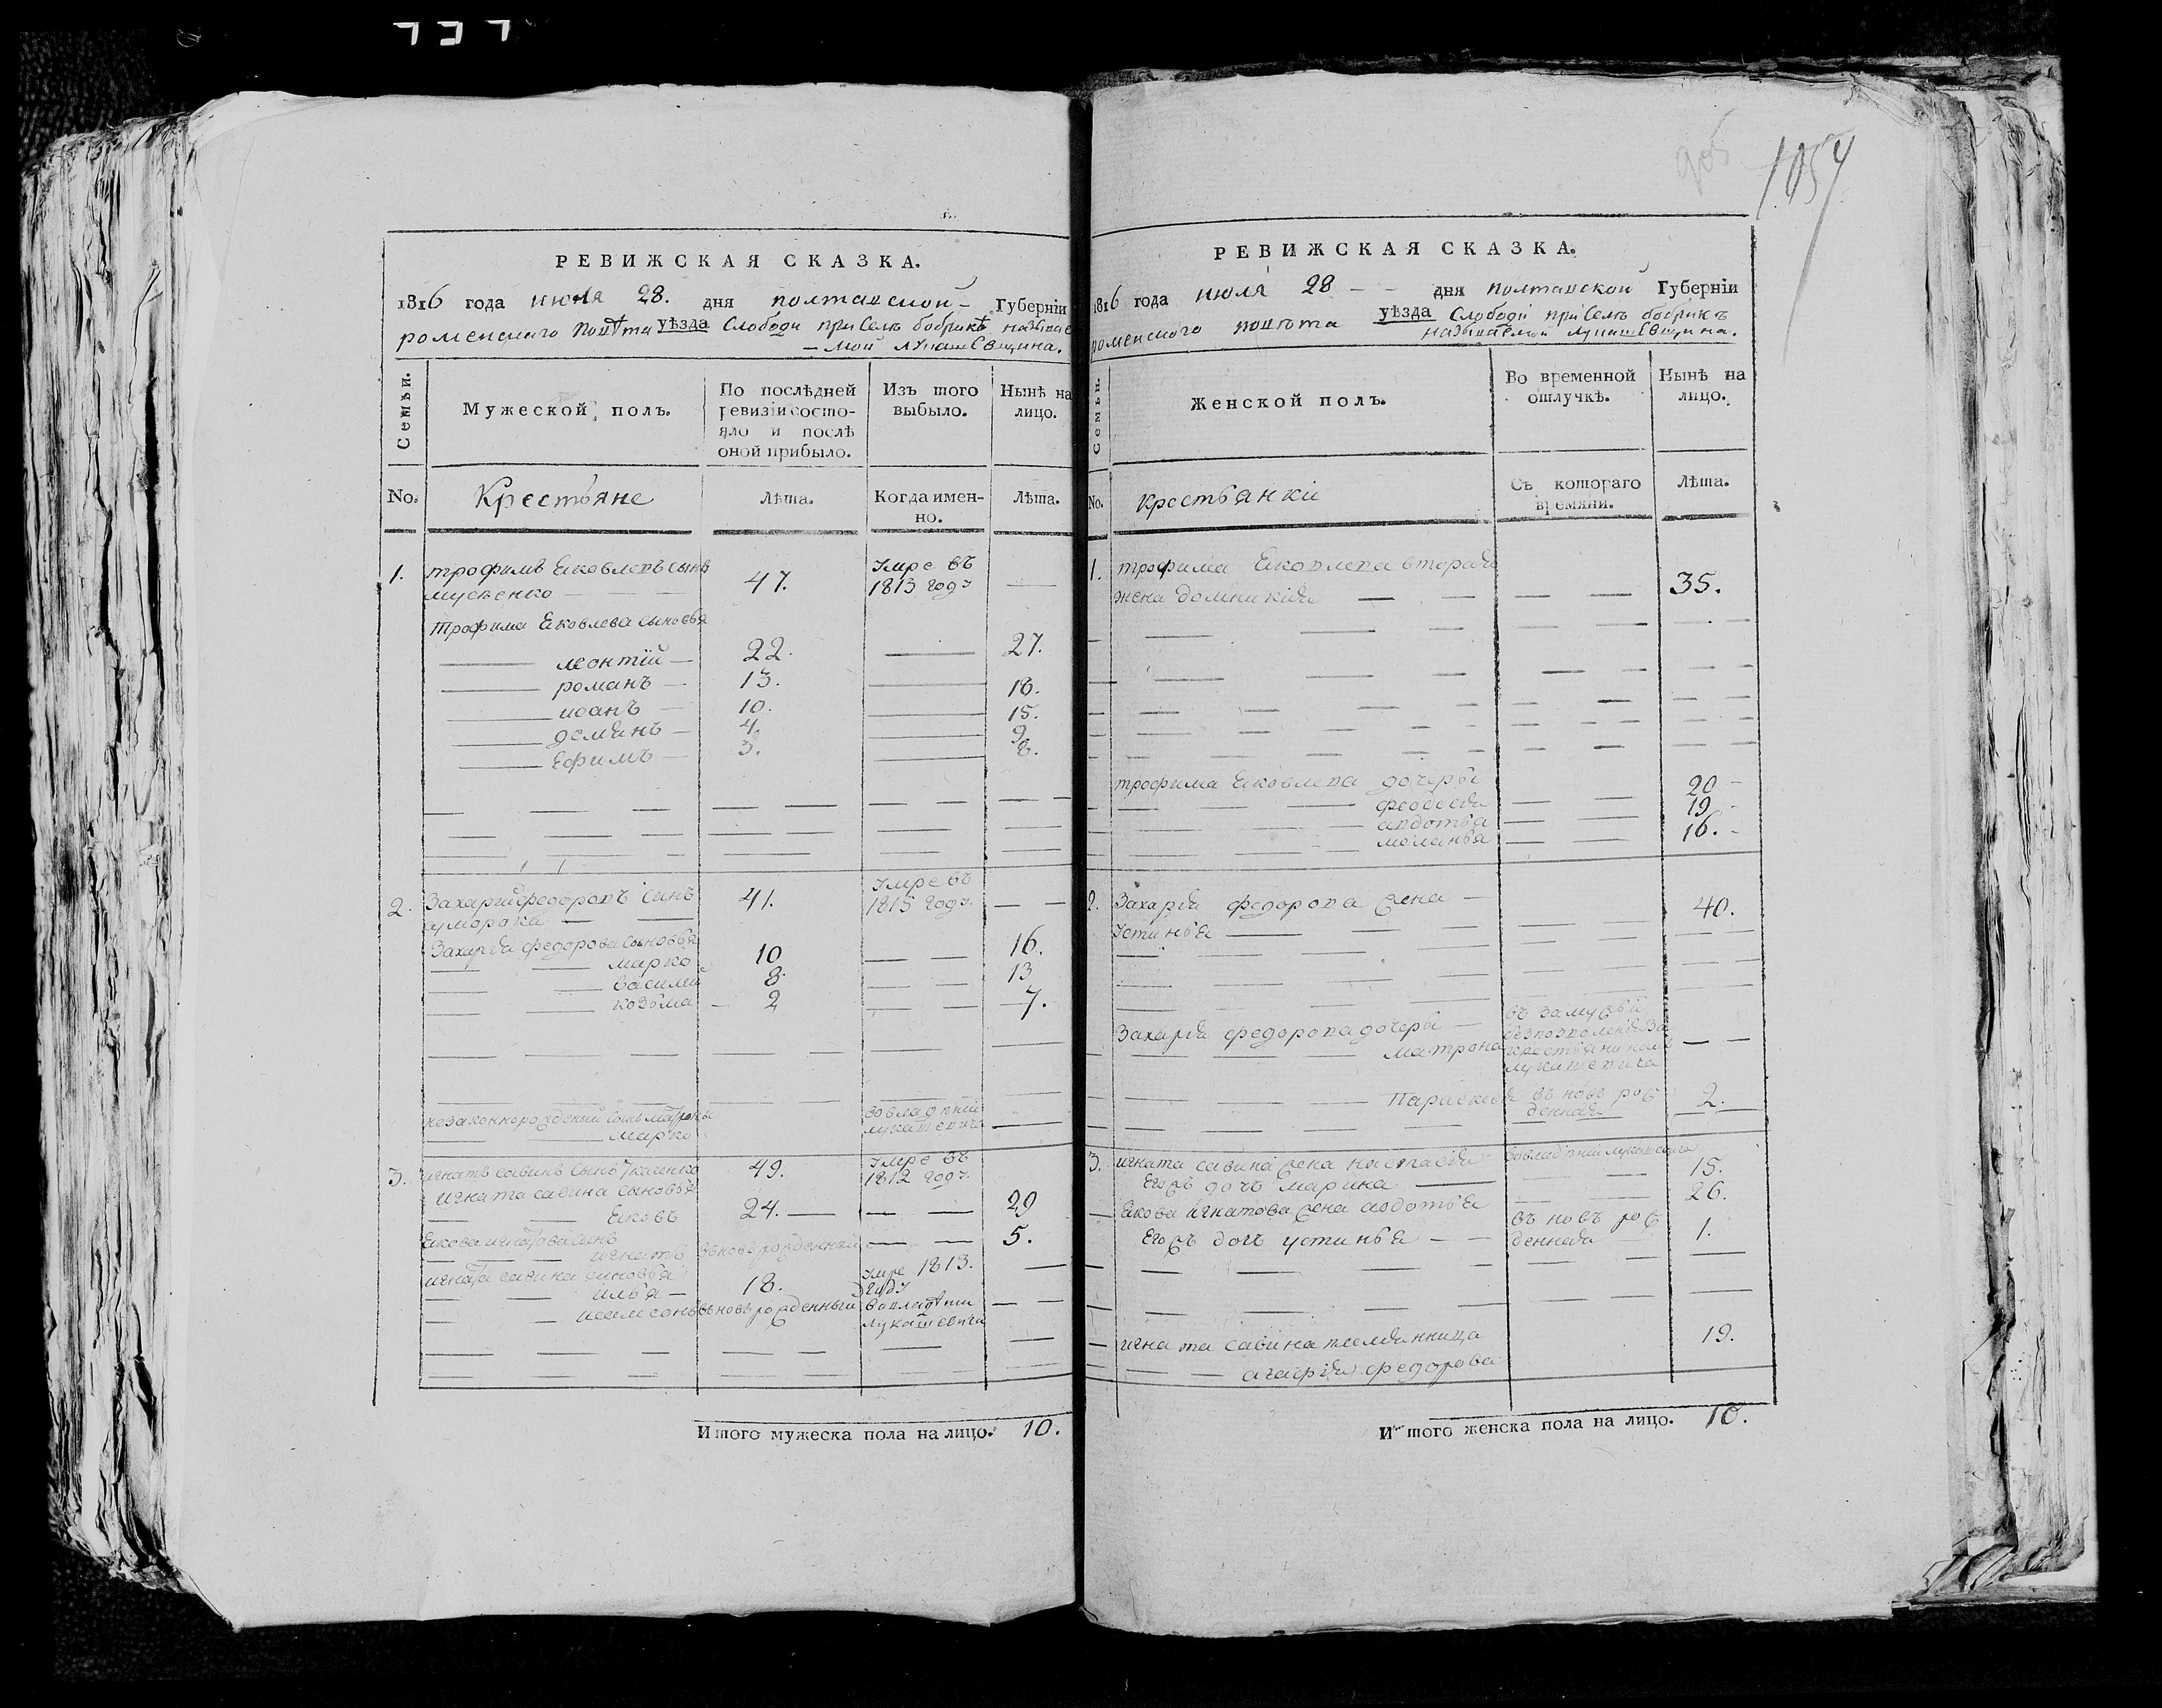 доб
1054
РЕВИЖСКАЯ СКАЗКА.
1816 года июля 28. дня полтавской Губерніи
роменскаго повѣта уѣзда Слободи при Селѣ бобрикѣ називае
мой лукашевщина.
Семьи.
Мужеской полъ.
По послѣдней
ревизіи состо-
яло и послѣ
оной прибыло.
Изъ того
выбыло.
Нынѣ на
лицо.
No.
Крестьяне
Лѣта.
Когда имен-
но.
Лѣта.
1. трофимъ Яковлевъ сынъ 47. Умре въ
1813 году
Трофима Яковлева сыновья
леонтій 22. 27.
романъ 13. 18.
иванъ 10. 15.
демянъ 4. 9.
Ефимъ 3. 8.
2. Захарій федоровъ синъ 41. Умре въ
1815 году
Захарія федорова сыновья
марко 10 16.
василий 8. 13
козьма 2 7.
незаконнорожденый сынъ матроны
марко
во владѣніи
лукашевича
3. игнатъ савинъ сынъ Ткаченко 49. Умре въ
1812 году
игната савина сыновья
Яковъ 24. 29
Якова игнатова синъ
игнатъ вновь рожденный 5.
игната савина синовья
илья 18. Умре 1813.
году
вновь рожденный во владѣнии
лукашевича
Итого мужеска пола на лицо. 10.
РЕВИЖСКАЯ СКАЗКА.
1816 года июля 28 дня полтавской Губерніи
роменского повѣта уѣзда Слободи при Селѣ бобрикѣ
называемой лукашевщина.
Семьи.
Женской полъ.
Во временной
отлучкѣ.
Нынѣ на
лицо.
No.
крестьянкі
Съ котораго
времяни.
Лѣта.
1. трофима Яковлева вторая
жена домникія 35.
трофима Яковлева дочеры
феодосія 20
авдотья 19
меланья 16.
2. Захарія федорова жена
Устинья 40.
Захарія федорова дочеры
матрона
въ замужьі
крестьянином
лукашевича
Параскевья въ новъ рож
денная 2.
3. игната савина жена настасія во владѣніи лукашевича
Егожъ дочь марина 15.
Якова игнатова жена авдотья 26.
Егожъ дочь устинья въ новъ рож
денная 1.
игната савина племянница 19.
агафія федорова
Итого женска пола на лицо. 10.